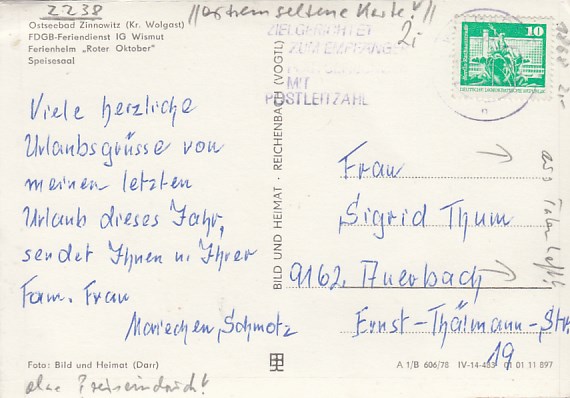 2238
//extrem seltene Karte!//
2,-
Ostseebad Zinnowitz (Kr. Wolgast)
FDGB-Feriendienst IG Wismut
Ferienheim „Roter Oktober"
Speisesaal
ZIELGERICHTET
ZUM EMPFÄNGER
MIT
POSTLEITZAHL
10
DEUTSCHE DEMOKRATISCHE REPUBLIK
Viele herzliche
Urlaubsgrüsse von
meinen letzten
Urlaub dieses Jahr,
sendet Ihnen u. Ihrer
Fam. Frau
Mariechen Schmotz
BILD UND HEIMAT · REICHENBACH (VOGTL)
Frau
Sigrid Thum
9162 Auerbach
Ernst-Thälmann-Str.
19
Foto: Bild und Heimat (Darr)
A 1/B 606/78 IV-14-483 01 01 11 897
ohne Preiseindruck!